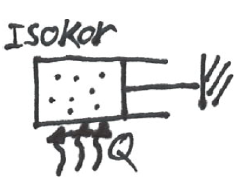 Isokor
Q